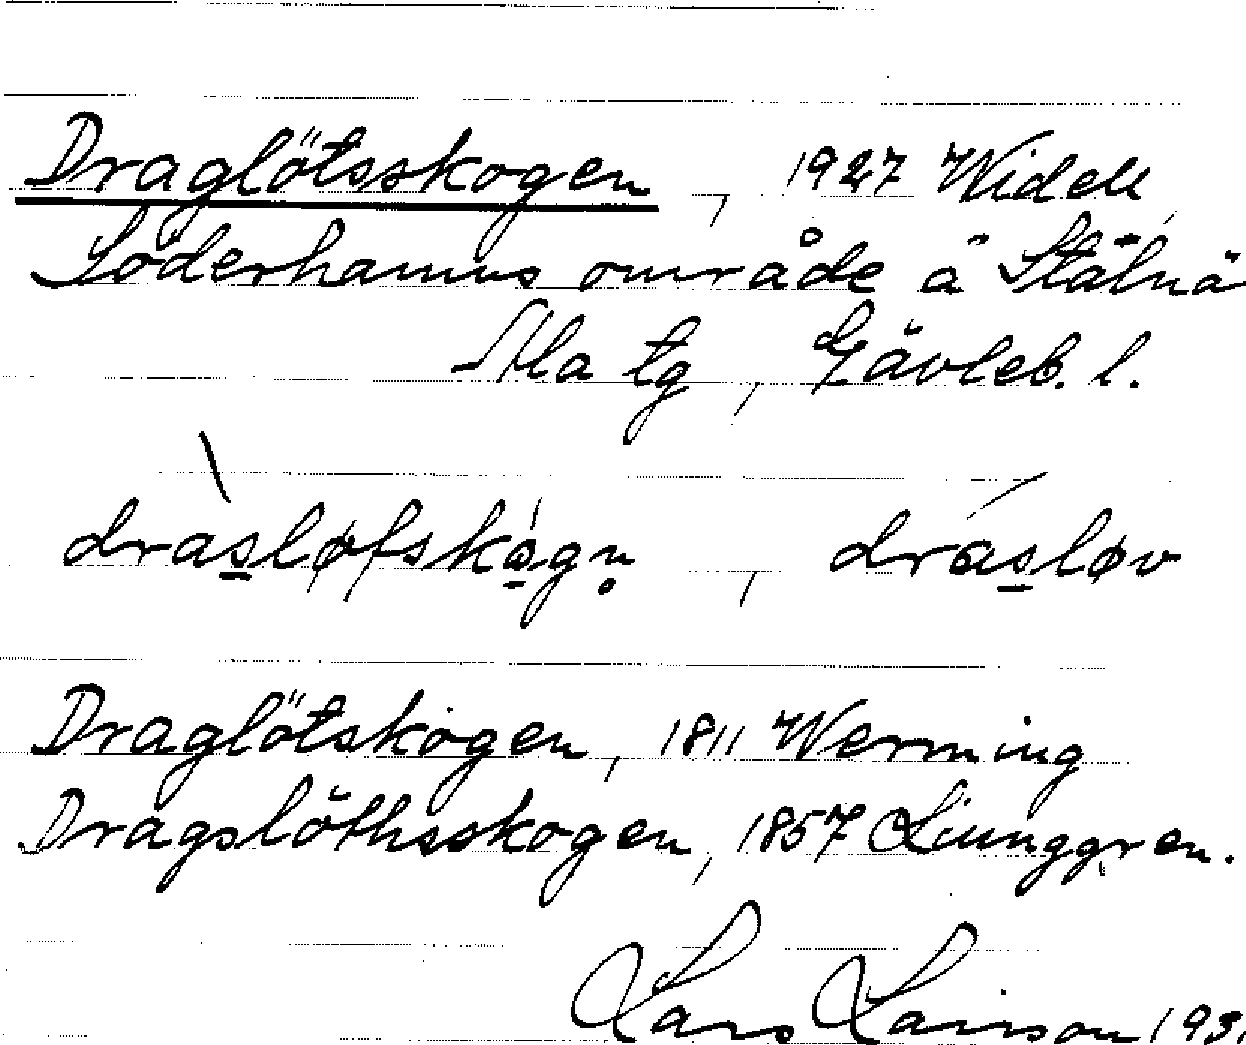 Draglötsskogen, 1927 Widell
Söderhamns område ä Stålnä
Ala tg, Gävleb. l.
drasløfskogn, drasløv
Draglötskogen, 1811 Werming
Dragslöthsskogen, 1857 Liunggren.
Lars Larsson 193